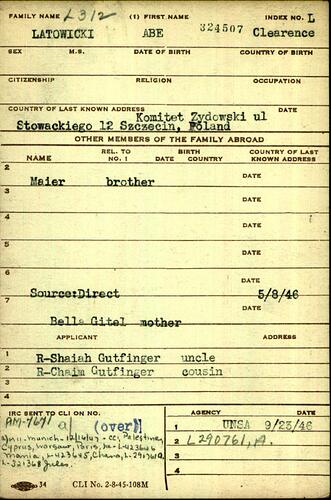 FAMILY NAME L312 (1) FIRST NAME INDEX NO. L
LATOWICKI ABE 324507 Clearence
SEX M.S. DATE OF BIRTH COUNTRY OF BIRTH
CITIZENSHIP RELIGION OCCUPATION
COUNTRY OF LAST KNOWN ADDRESS DATE
Komitet Zydowski ul
Stowackiego 12 Szczecin, Poland
OTHER MEMBERS OF THE FAMILY ABROAD
NAME REL. TO NO. 1 BIRTH DATE COUNTRY COUNTRY OF LAST KNOWN ADDRESS
2 DATE
Maier brother
3 DATE
4 DATE
5 DATE
6 DATE
Source:Direct 5/8/46
7 DATE
Bella Gitel mother
APPLICANT ADDRESS
1 R-Shaiah Gutfinger uncle
2 R-Chaim Gutfinger cousin
3
4
IRC SENT TO CLI ON NO. AGENCY DATE
AM-7671 a/ (over) 1 UNSA 9/23/46
2 L290761, A.
3
4
Munich-12/16/47-CC, Palestine,
Cyprus, Warsaw, Paris,
Mania, L-423645, Chawa,
L-321368 Jules.
34 CLI No. 2-8-45-108M